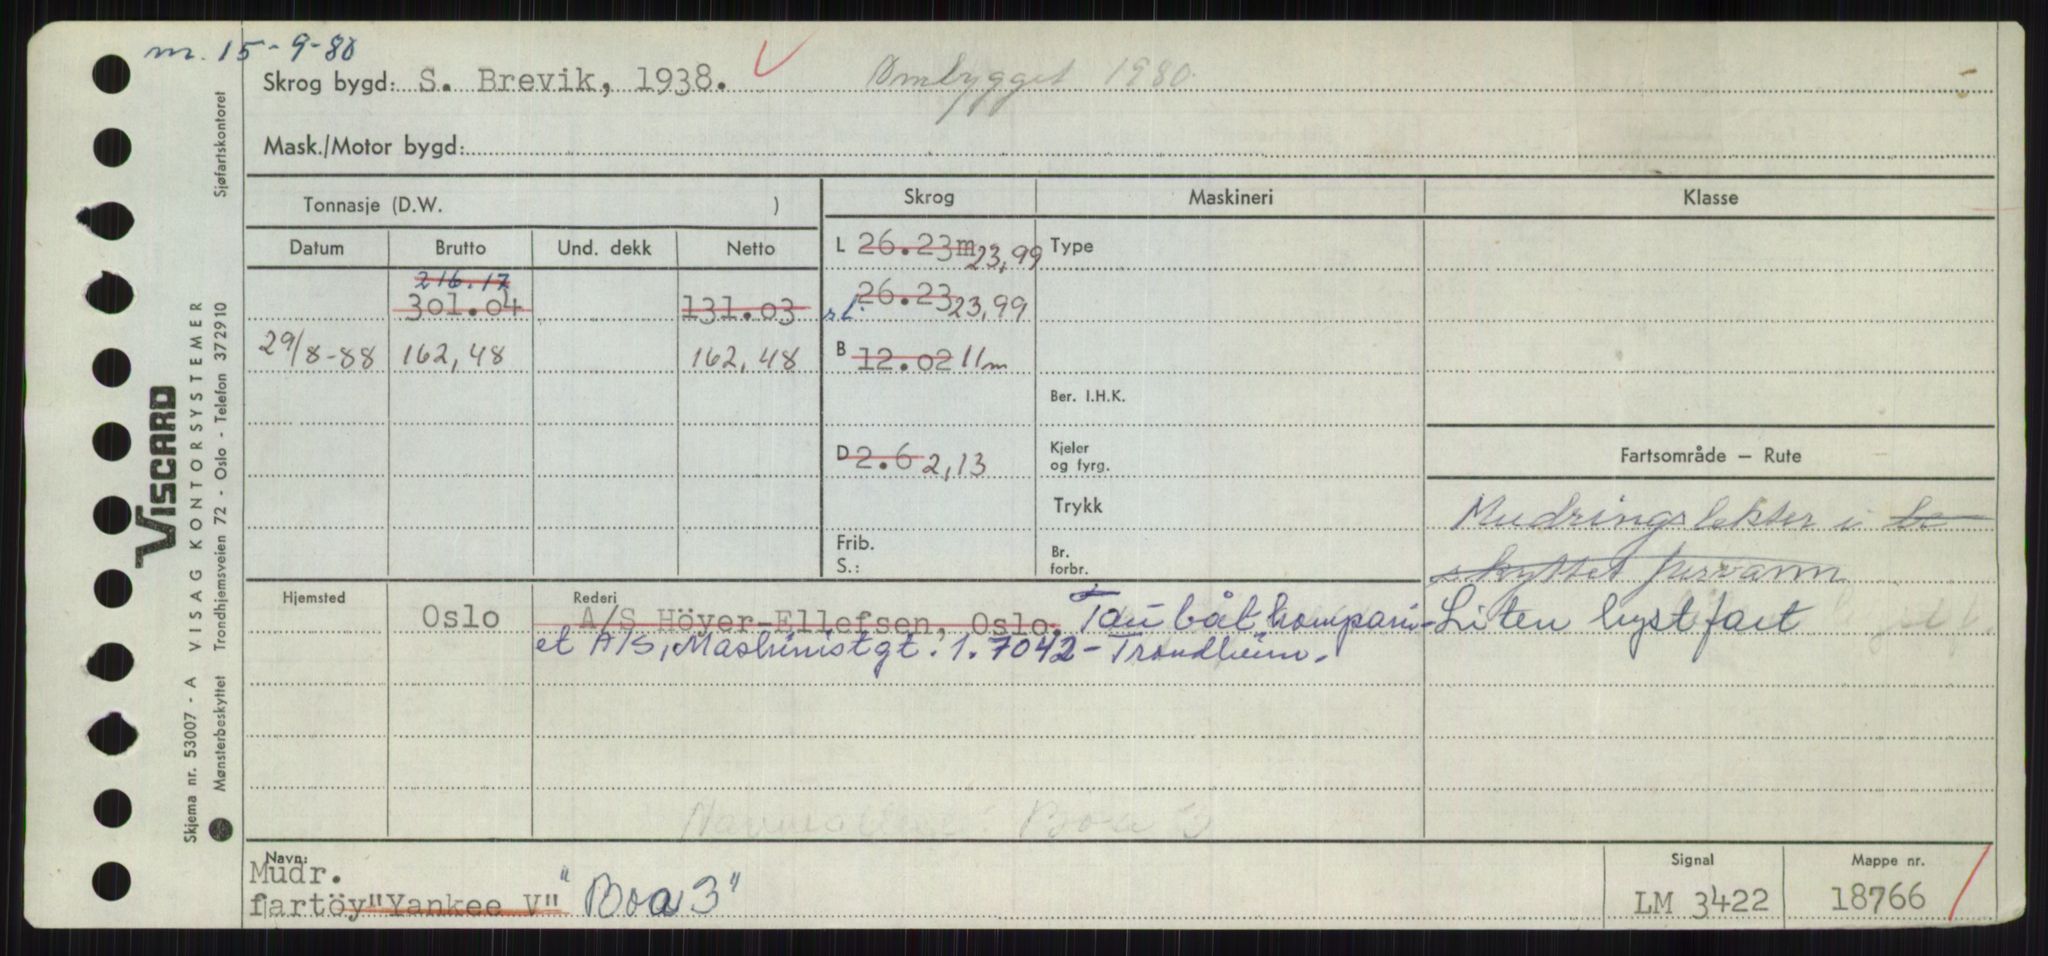 m. 15-9-80
Skrog bygd: S. Brevik, 1938. Ombygget 1980.
Mask./Motor bygd:
Tonnasje (D.W. ) Skrog Maskineri Klasse
Datum Brutto Und. dekk Netto L 26.23m 23,99 Type
216.17
301.04 131.03 sL. 26.23 23,99
29/8-88 162,48 162,48 B 12.02 11m
Ber. I.H.K.
Fartsområde — Rute
D 2.6 2,13 Kjeler og fyrg.
Trykk Mudringslekter i be-
Frib. S.: Br. forbr. skyttet farvann
Hjemsted Rederi
Oslo A/S Höyer-Ellefsen, Oslo. Taubåtkompani- Liten kystfart
et A/S, Maskinistgt. 1. 7042 - Trondheim.
Boa 3
Navn: Signal Mappe nr.
Mudr.
fartöy "Yankee V" "Boa 3" LM 3422 18766
VISCARD
VISAG KONTORSYSTEMER
Skjema nr. 53007 - A
Mønsterbeskyttet Trondhjemsveien 72 - Oslo - Telefon 372910 Sjøfartskontoret